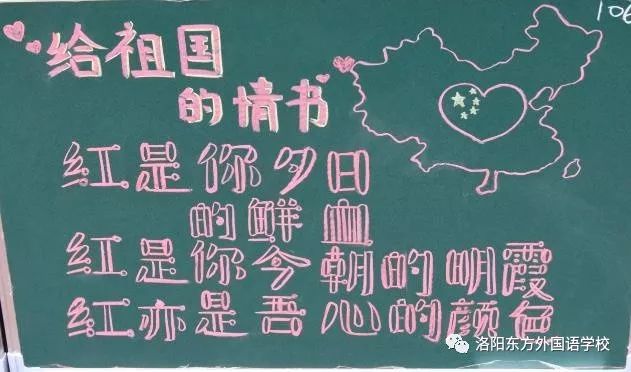 106
给祖国
的情书
红是你夕日
的鲜血
红是你今朝的明霞
红亦是吾心的颜色
洛阳东方外国语学校